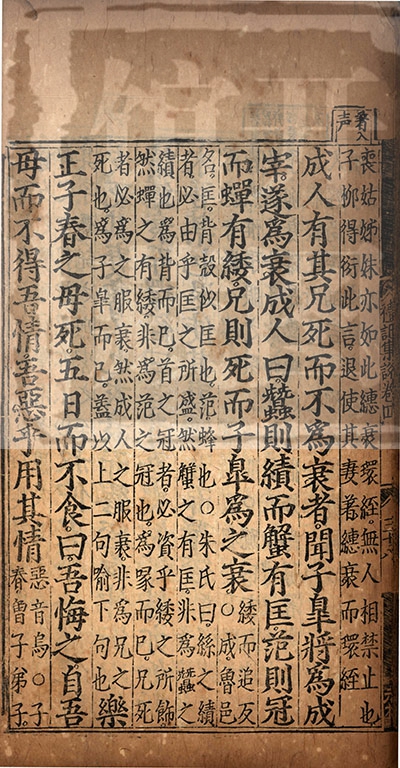 著入
声
禮記集說卷四
喪姑姊妹亦如此繐衰環絰無人相禁止也
子柳得衍此言退使其妻著繐衰而環絰
成人有其兄死而不為衰者。聞子臯將為成
宰。遂為衰成人曰。蠶則績而蟹有匡。范則冠
而蟬有緌。兄則死而子臯為之衰
緌而追反
○成。魯邑
名。匡。背殻似匡也。范蜂也○朱氏曰。絲之績
者必由乎匡之所盛。然蟹之有匡。非為蠶之
績也。為背而巳。首之冠者。必資乎緌之所飾
然蟬之有緌非為范之冠也。為喙而巳。兄死
者必為之服衰。然成人之服衰。非為兄之
死也。為子臯而巳。蓋以上二句喻下句也
樂
正子春之母死。五日而不食。曰。吾悔之自吾
母而不得吾情。吾惡乎用其情
惡音烏○子
春曾子弟子。